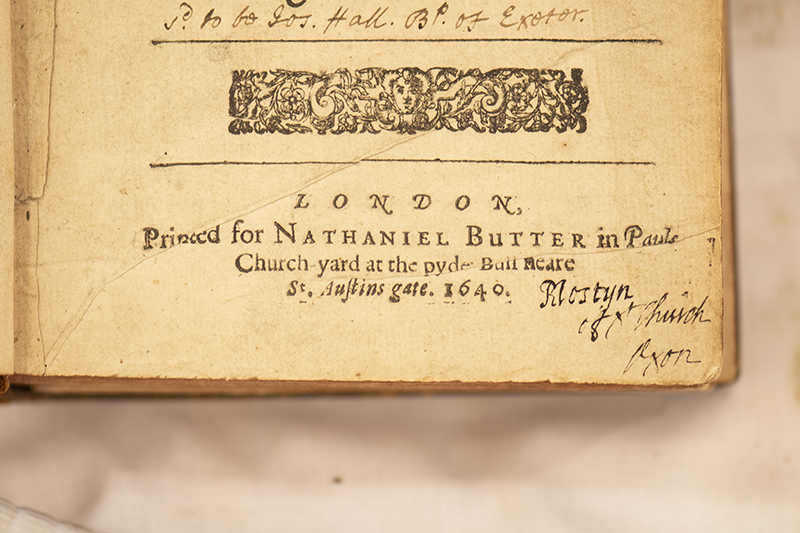 sd. to be Jos. Hall. Bp. of Exeter.
LONDON,
Printed for NATHANIEL BUTTER in Pauls
Church-yard at the pyde Bull neare
St. Austins gate. 1640.
Mostyn
of Xt Church
Oxon